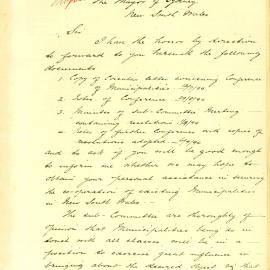 The Mayor of Sydney
New South Wales
Sir
I have the honor by direction
to forward to you herewith the following
documents
1. Copy of Circular letter convening Conference
of Municipalities
2. Notes of Conference
3. Minutes of Sub-Committee Meeting
containing resolution
4. Notes of further Conference with copies of
resolutions adopted
and to ask if you will be good enough
to inform me whether we may hope to
obtain your personal assistance in securing
the co-operation of existing Municipalities
in New South Wales
The Sub-Committee are thoroughly of
opinion that Municipalities being as in
touch with all classes will be in a
position to exercise great influence in
bringing about the desired object of that